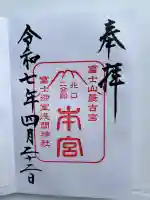 奉拝
富士山最古宮
北口
二合目
本宮
富士御室浅間神社
令和七年四月二十二日